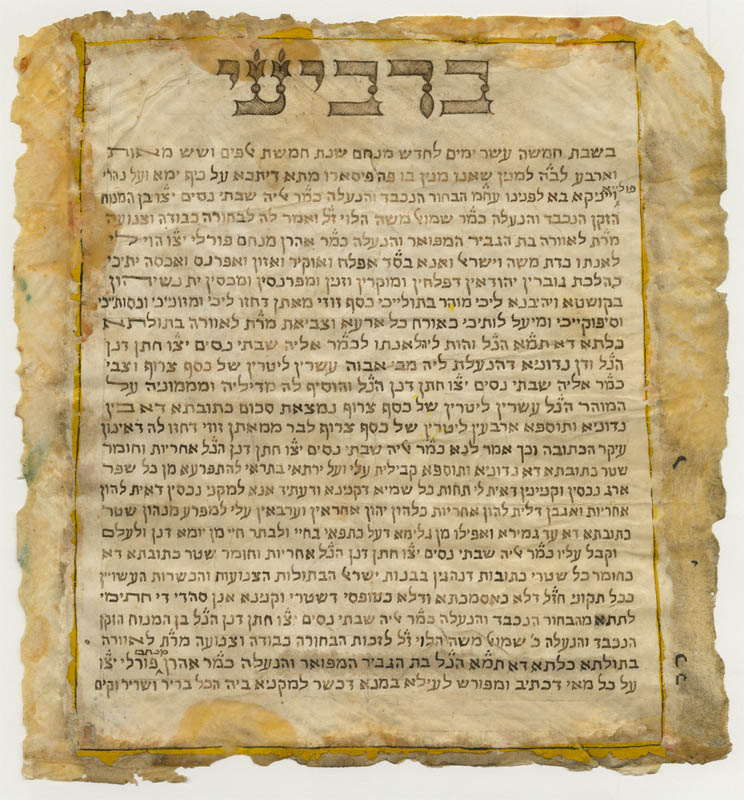 ברביעי
בשבת חמשה עשר ימים לחדש מנחם שנת חמשת אלפים ושש מאות
וארבע לב״ה למנין שאנו מנין בו פה פיסארו מתא דיתבא על כיף ימא ועל נהרי
פוליא
וויניקא בא לפנינו עח״מ הבחור הנכבד והנעלה כמ״ר אליה שבתי נסים יצ״ו בן המנוח
הזקן הנכבד והנעלה כמר שמואל משה הלוי ז״ל ואמר לה לבחורה כבודה וצנועה
מר״ת לאוורה בת הגביר המפואר והנעלה כמ״ר אהרן מנחם פורלי יצ״ו הוי לי
לאנתו כדת משה וישראל ואנא בס״ד אפלח ואוקיר ואזון ואפרנס ואכסה יתיכי
כהלכת גוברין יהודאין דפלחין ומוקרין וזנין ומפרנסין ומכסין ית נשיהון
בקושטא ויהיבנא ליכי מוהר בתולייכי כסף זוזי מאתן דחזו ליכי ומזוניכי וכסותיכי
וסיפוקייכי ומיעל לותיכי כאורח כל ארעא וצביאת מר״ת לאוורה בתולתא
כלתא דא תמ״א הנ״ל והות ליה לאנתו לכמ״ר אליה שבתי נסים יצ״ו חתן דנן
הנ״ל ודן נדוניא דהנעלת ליה מבי אבוה עשרין ליטרין של כסף צרוף וצבי
כמ״ר אליה שבתי נסים יצ״ו חתן דנן הנ״ל והוסיף לה מדיליה וממוניה על
המוהר הנ״ל עשרין ליטרין של כסף צרוף נמצאת סכום כתובתא דא בין
נדוניא ותוספא ארבעין ליטרין של כסף צרוף לבר ממאתן זוזי דחזו לה דאינון
עיקר הכתובה וכך אמר לנא כמ״ר אליה שבתי נסים יצ״ו חתן דנן הנ״ל אחריות וחומר
שטר כתובתא דא נדוניא ותוספא קבילית עלי ועל ירתאי בתראי להתפרעא מן כל שפר
ארג נכסין וקנינין דאית לי תחות כל שמיא דקנינא ודעתיד אנא למקני נכסין דאית להון
אחריות ואגבן דלית להון אחריות כלהון יהון אחראין וערבאין עלי למפרע מנהון שטר
כתובתא דא עד גמירא ואפילו מן גלימא דעל כתפאי בחיי ולבתר חיי מן יומא דנן ולעלם
וקבל עליו כמ״ר אליה שבתי נסים יצ״ו חתן דנן הנ״ל אחריות וחומר שטר כתובתא דא
כחומר כל שטרי כתובות דנהגין בבנות ישראל הבתולות הצנועות והכשרות העשויין
ככל תקוני חז״ל דלא כאסמכתא ודלא כטופסי דשטרי וקנינא אנן סהדי די חתימי
לתתא מהבחור הנכבד והנעלה כמ״ר אליה שבתי נסים יצ״ו חתן דנן הנ״ל בן המנוח הזקן
הנכבד והנעלה כ׳ שמואל משה הלוי ז״ל לזכות הבחורה כבודה וצנועה מר״ת לאוורה
מנחם
בתולתא כלתא דא תמ״א הנ״ל בת הגביר המפואר והנעלה כמ״ר אהרן פורלי יצ״ו
על כל מאי דכתיב ומפורש לעילא במנא דכשר למקניא ביה הכל בריר ושריר וקים